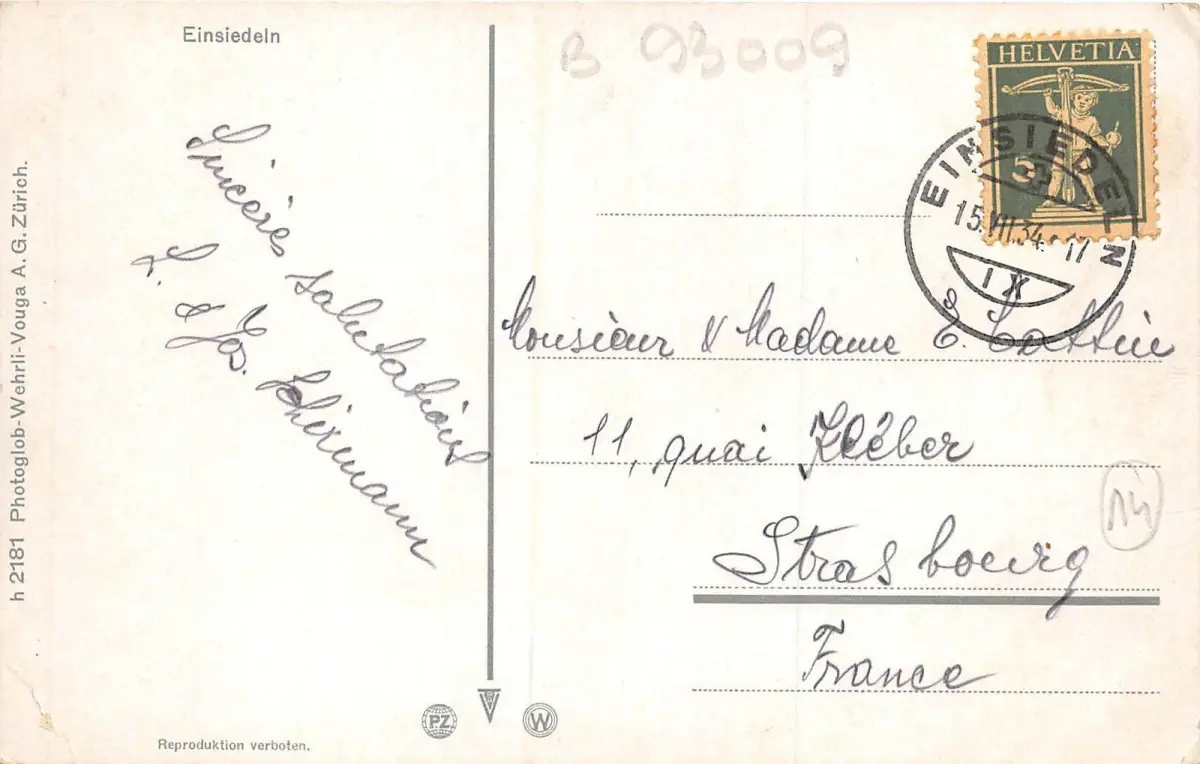 Einsiedeln
B 93009
HELVETIA
5
EINSIEDELN
15.VII.34. 17
IX
Sincères salutations
L. & Jos. Schirmann
Monsieur & Madame E. Cottin
11, quai Kléber
Strasbourg
France
14
h 2181 Photoglob-Wehrli-Vouga A. G. Zürich.
PZ
W
Reproduktion verboten.